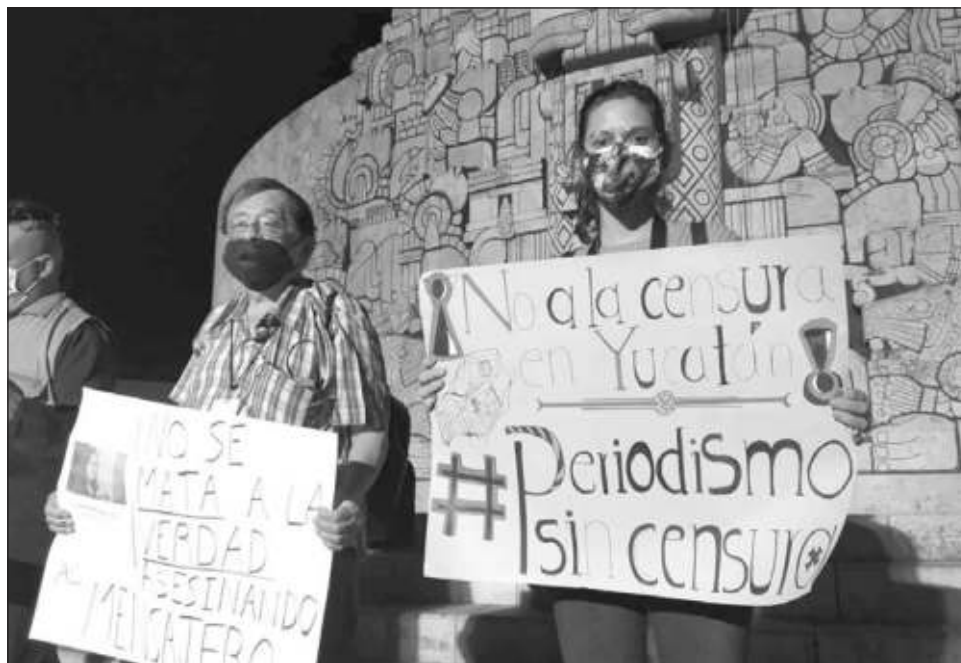 NO SE
MATA A LA
VERDAD
ASESINANDO
AL MENSAJERO
No a la censura
en Yucatán
#Periodismo
sin censura